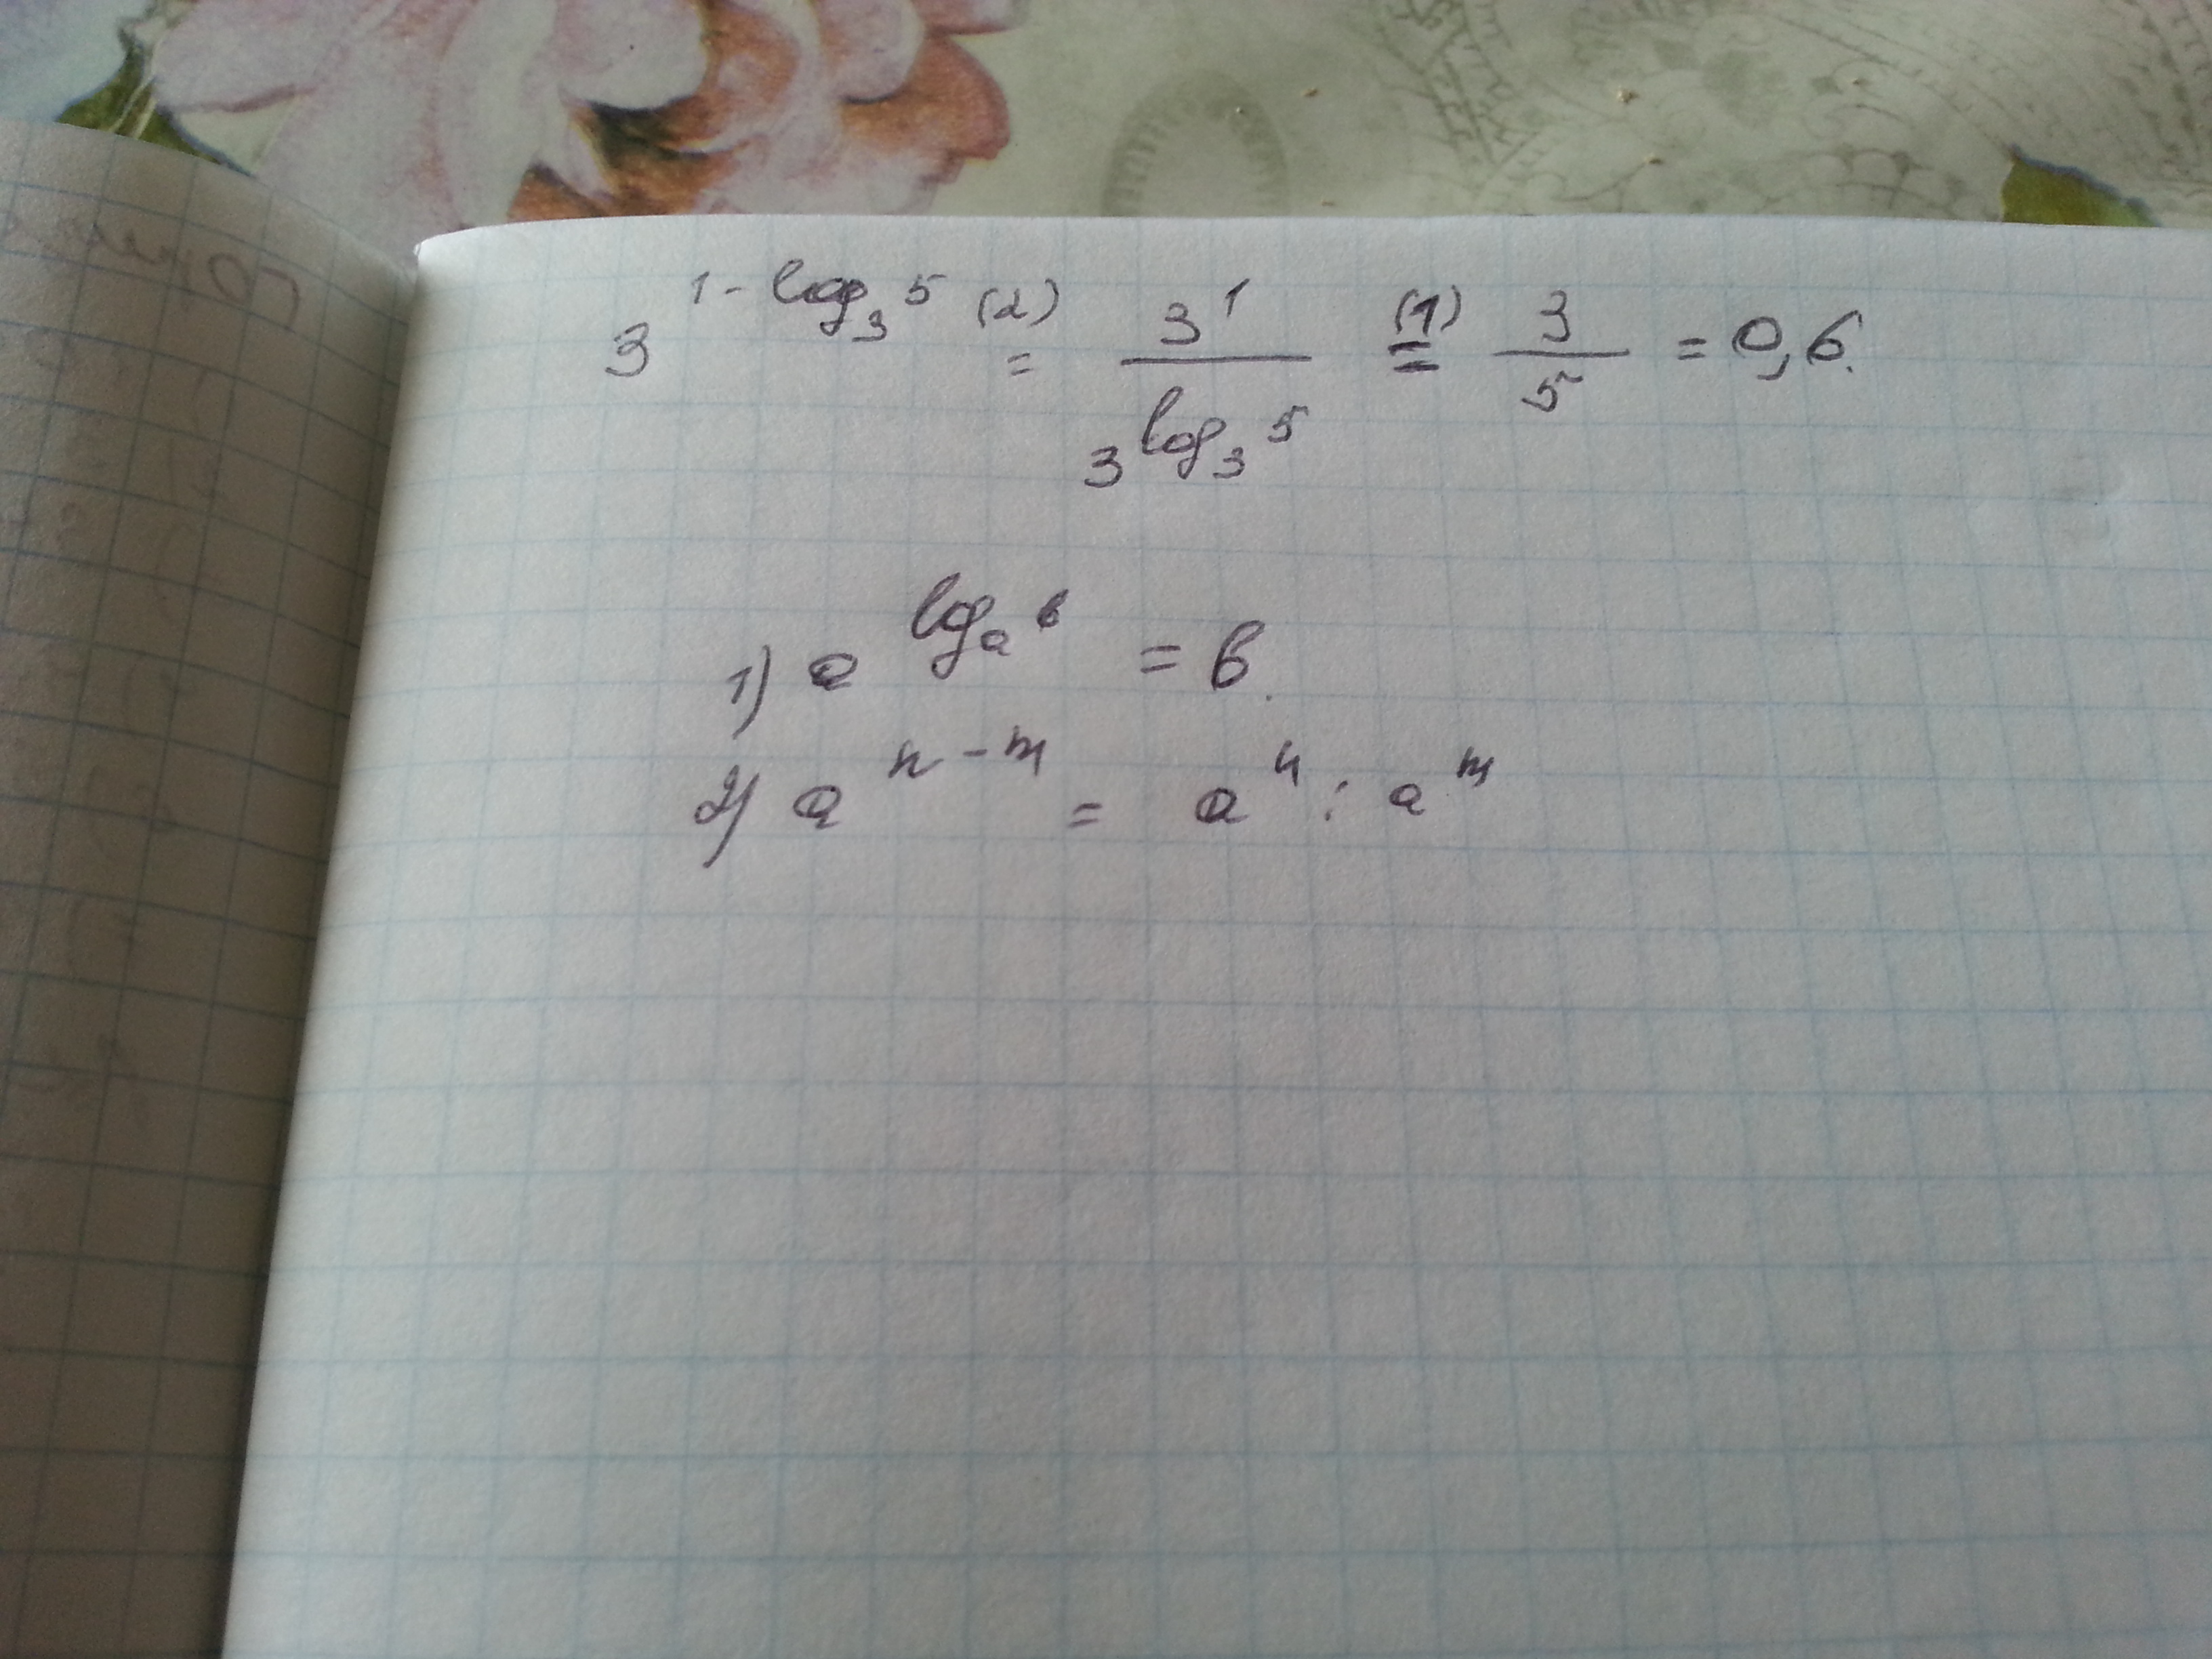 3^(1-log_3 5) (2)= 3^1 / 3^(log_3 5) (1)= 3/5 = 0,6.
1) a^(log_a b) = b.
2) a^(n-m) = a^n : a^m